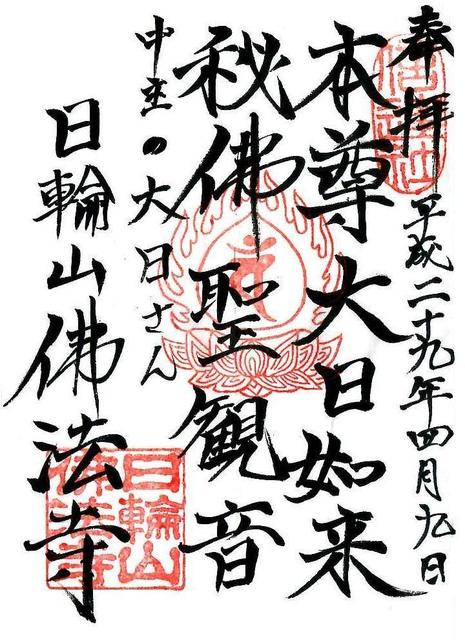 奉拝 平成二十九年四月九日
本尊大日如来
秘佛聖観音
中庄の大日さん
日輪山佛法寺
日輪山
佛法寺